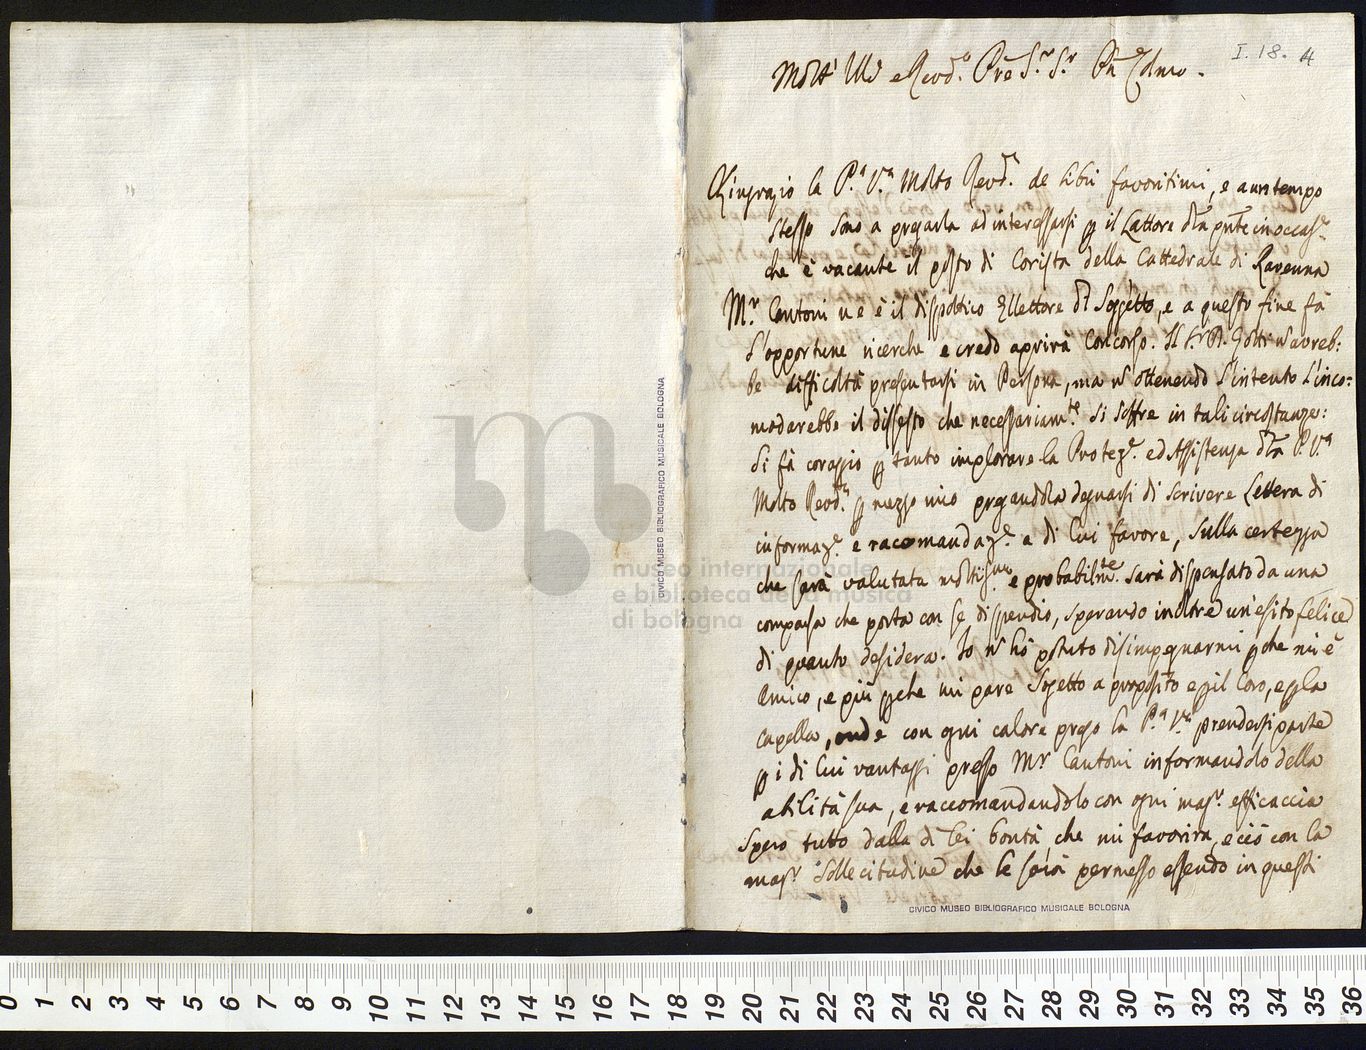 I. 18. 4
Molt' Ill.e e Revd.o Pre S.r S.r Pn Colmo.
Ringrazio la P.a V.a Molto Revd.a de libri favoritimi, e a un tempo
stesso sono a pregarla ad interessarsi p il Lattore dla pnte in occas.e
che è vacante il posto di Corista della Cattedrale di Ravenna
M.r Cantoni ne è il dispotico Ellettore dl Soggetto, e a questo fine fà
l'opportune ricerche e credo aprirà Concorso. Il S.r D. Gotti n avreb:
be difficoltà presentarsi in Persona, ma n ottenendo l'intento l'inco:
modarebbe il dissesto che necessariam.te si soffre in tali circostanze:
si fà coraggio p tanto implorare la Protez.e ed Assistenza dlla P. V.a
Molto Revd.a p mezzo mio pregandola degnarsi di scrivere Lettera di
informaz.e e racomandaz.e a di lui favore, sulla certezza
che sarà valutata moltissmo e probabilm.te sarà dispensato da una
comparsa che porta con se dispendio, sperando inoltre un'esito felice
di quanto desidera. Io n hò potuto disimpegnarmi pche mi è
Amico, e più pche mi pare Sogetto a proposito e pil Coro, e pla
Capella, onde con ogni calore prego la P.a V.a prendersi parte
p i di lui vantaggi presso M.r Cantoni informandolo della
abilità sua, e raccomandandolo con ogni mag.r efficaccia
Spero tutto dalla di lei bontà che mi favorira, e ciò con la
mag.r sollecitudine che le sarà permesso essendo in questi
CIVICO MUSEO BIBLIOGRAFICO MUSICALE BOLOGNA
CIVICO MUSEO BIBLIOGRAFICO MUSICALE BOLOGNA
museo internazionale
e biblioteca della musica
di bologna
0 1 2 3 4 5 6 7 8 9 10 11 12 13 14 15 16 17 18 19 20 21 22 23 24 25 26 27 28 29 30 31 32 33 34 35 36